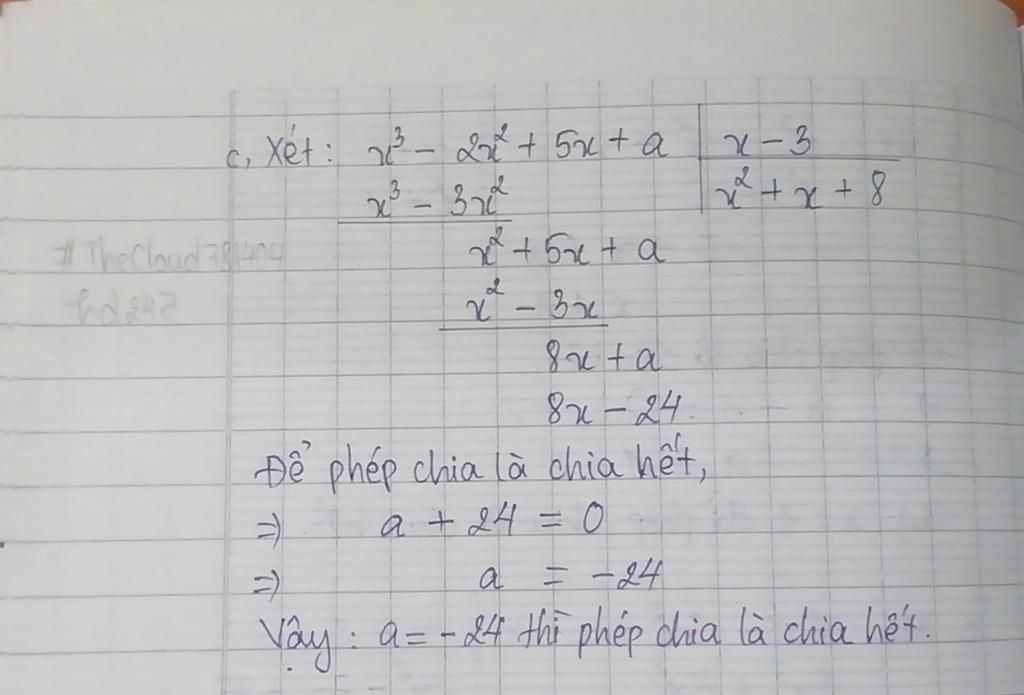 c, Xét: x³ - 2x² + 5x + a | x - 3
x³ - 3x² | x² + x + 8
x² + 5x + a
#TheCloud
x² - 3x
8x + a
8x - 24
Để phép chia là chia hết,
=> a + 24 = 0
=> a = -24
Vậy : a = -24 thì phép chia là chia hết.